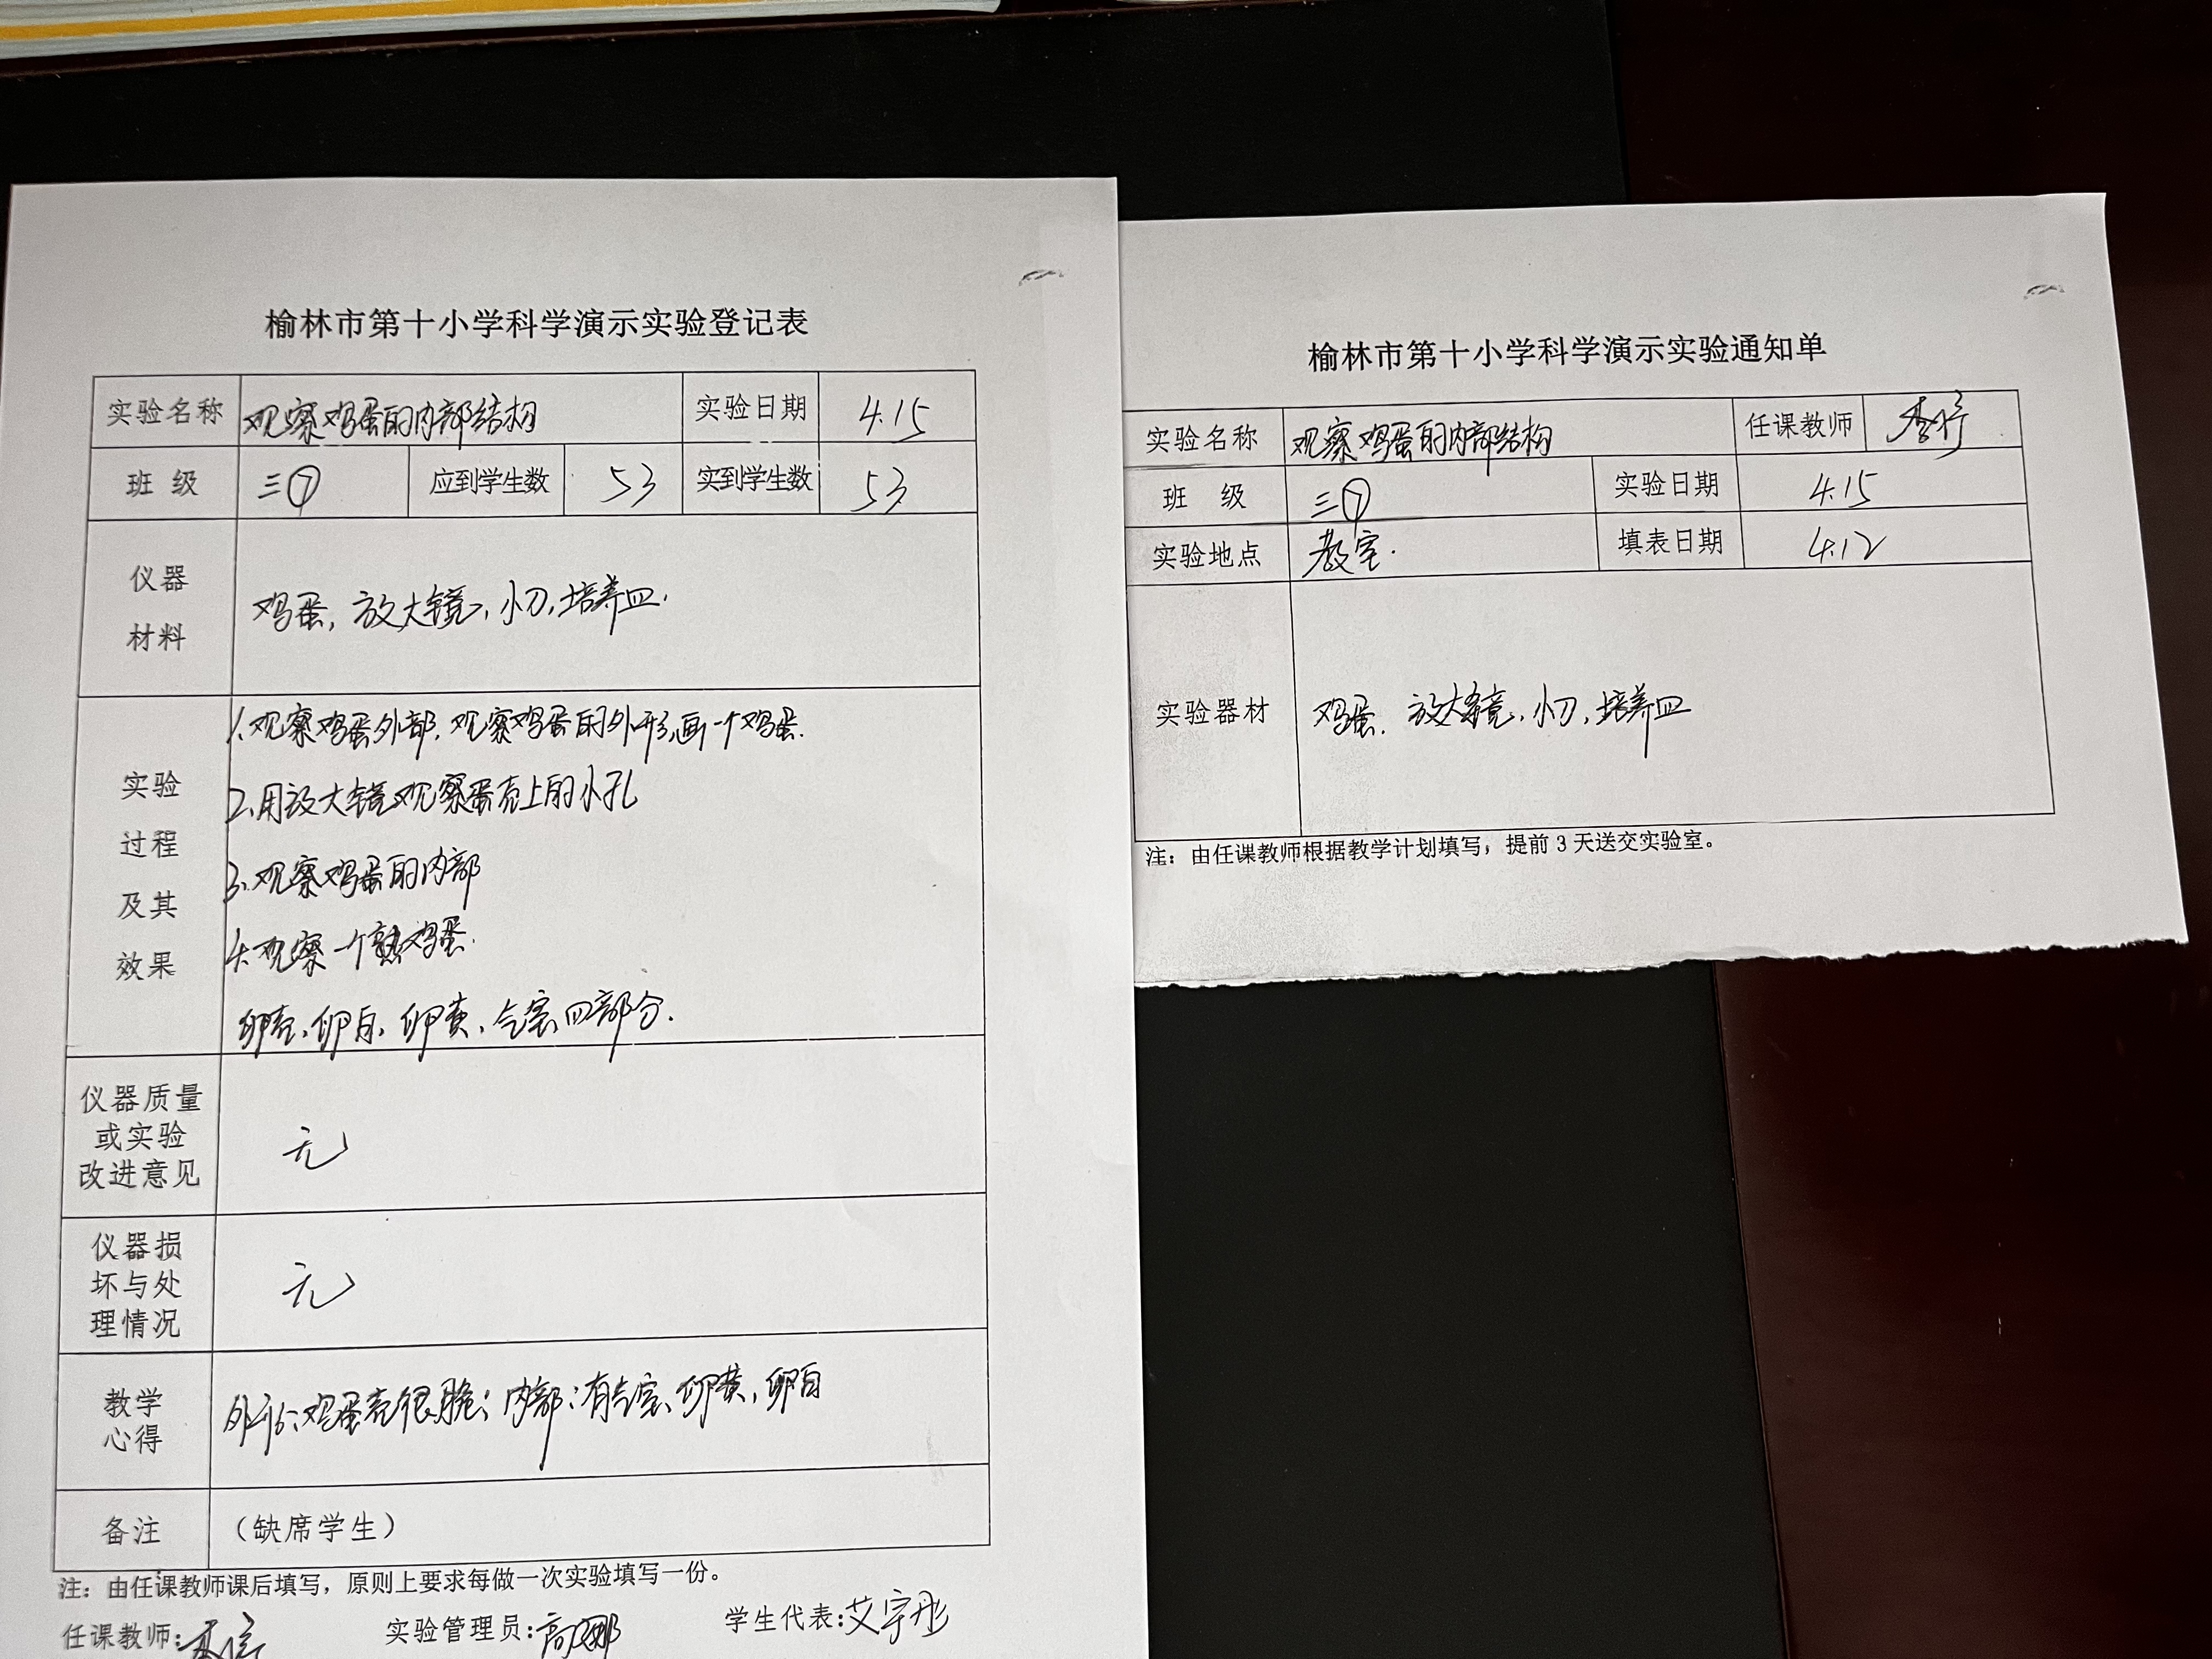 榆林市第十小学科学演示实验登记表
实验名称 观察鸡蛋的内部结构 实验日期 4.15
班 级 三⑦ 应到学生数 53 实到学生数 53
仪器
材料
鸡蛋, 放大镜, 小刀, 培养皿.
实验
过程
及其
效果
1.观察鸡蛋外部, 观察鸡蛋的外形,画一个鸡蛋.
2.用放大镜观察蛋壳上的小孔
3.观察鸡蛋的内部
4.观察一个熟鸡蛋.
卵壳、卵白、卵黄、气室四部分.
仪器质量
或实验
改进意见
无
仪器损
坏与处
理情况
无
教学
心得
外形:鸡蛋壳很脆; 内部:有气室、卵黄, 卵白
备注 (缺席学生)
注：由任课教师课后填写，原则上要求每做一次实验填写一份。
任课教师: 实验管理员:高娜 学生代表:艾宇彤
榆林市第十小学科学演示实验通知单
实验名称 观察鸡蛋的内部结构 任课教师
班 级 三⑦ 实验日期 4.15
实验地点 教室. 填表日期 4.12
实验器材 鸡蛋. 放大镜, 小刀, 培养皿
注：由任课教师根据教学计划填写，提前 3 天送交实验室。